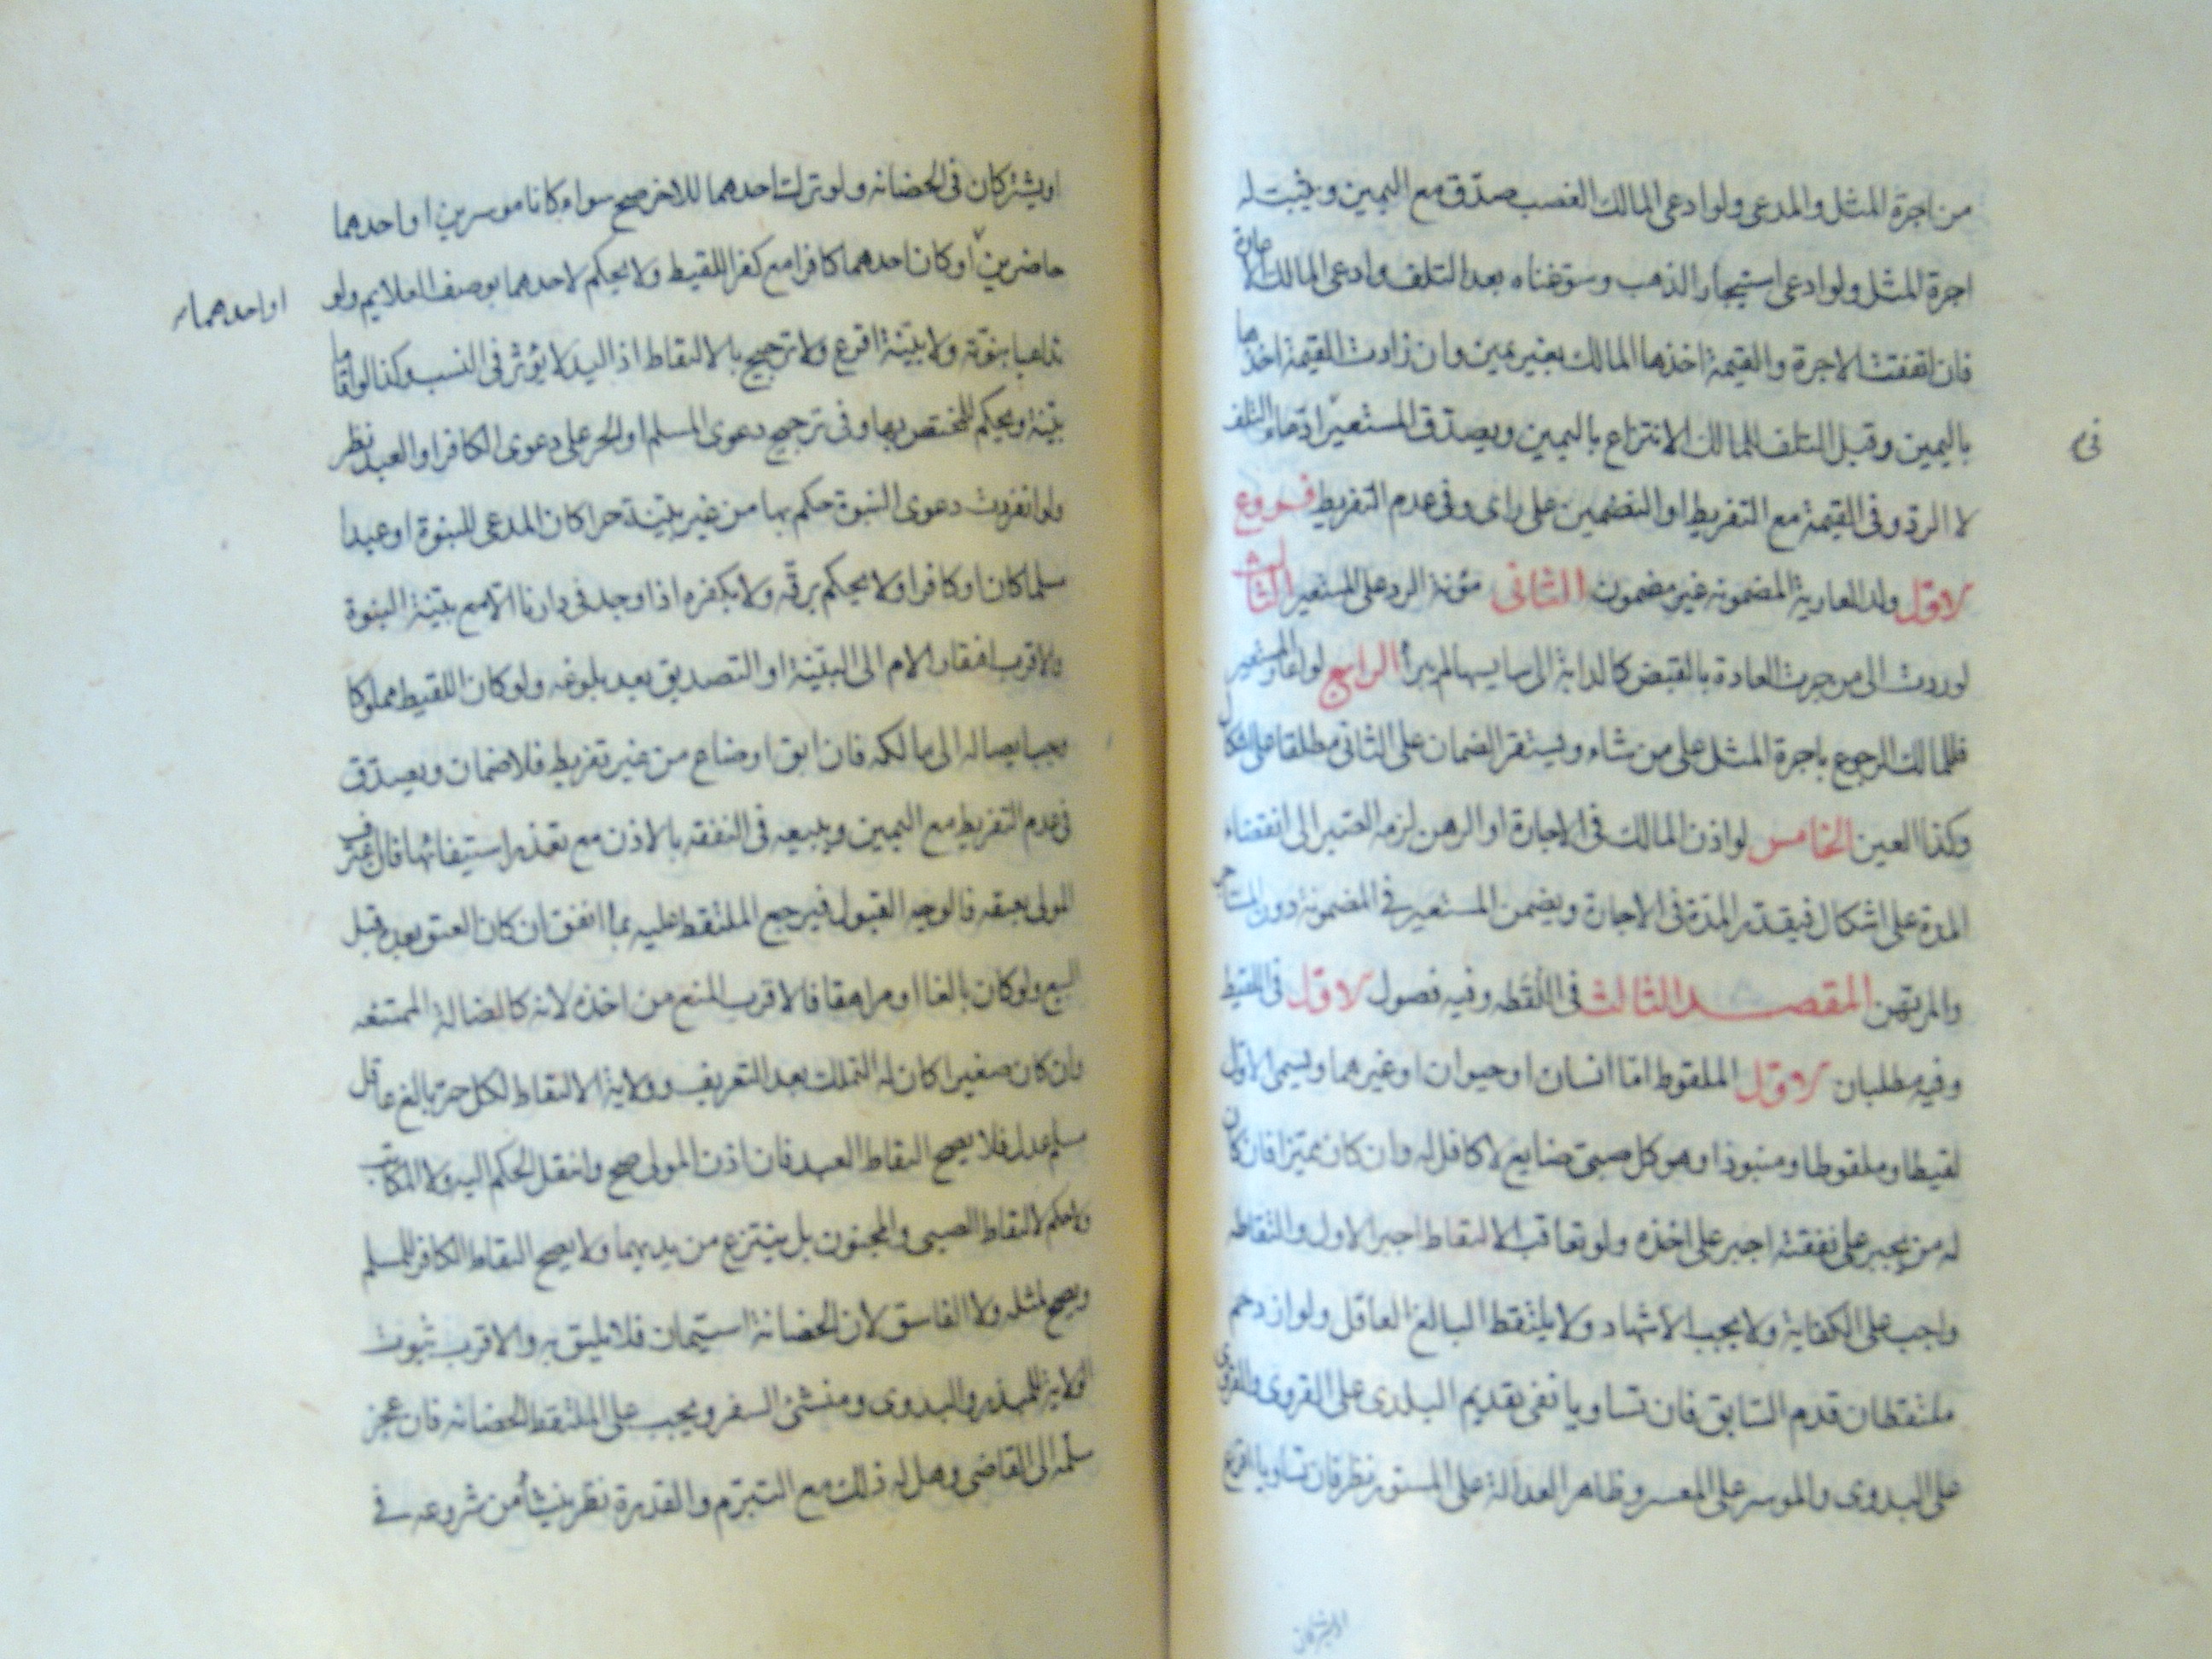 من اجرة المثل والمدعى ولو ادعى المالك الغصب صدّق مع اليمين ويثبت له
اجرة المثل ولو ادعى استيجار الذهب وسوّغناه بعد التلف وادعى المالك الاعارة
فان اتفقت الاجرة والقيمة اخذها المالك بغير يمين وان زادت القيمة اخذها
باليمين وقبل التلف للمالك الانتزاع باليمين ويصدّق المستعير ادّعاء التلف
فى
لا الرد وفى القيمة مع التفريط او التضمين على راى وفى عدم التفريط فروع
الاوّل ولد العارية المضمونه غير مضمون الثانى مؤنة الرد على المستعير الثالث
لو ردت الى من جرت العادة بالقبض كالدابة الى سايسها لم يبرأ الرابع لو اعار المستعير
فللمالك الرجوع باجرة المثل على من شاء ويستقر الضمان على الثانى مطلقا على اشكال
وكذا العين الخامس لو اذن المالك فى الاجارة او الرهن لزمه الصبر الى انقضاء
المدة على اشكال فيقدّر المدّة فى الاجارة ويضمن المستعير فى المضمونة دون المستاجر
والمرتهن المقصد الثالث فى اللُقَطه وفيه فصول الاوّل فى اللقيط
وفيه مطلبان الاوّل الملقوط امّا انسان او حيوان او غيرهما ويسمى الاوّل
لقيطا وملقوطا ومنبوذا وهو كل صبىّ ضايع لا كافل له وان كان مميّزا فان كان
له من يجبر على نفقته اجبر على اخذه ولو تعاقب الالتقاط اجبر الاول والتقاطه
واجب على الكفاية ولا يجب الاشهاد ولا يلتقط البالغ العاقل ولو ازدحم
ملتقطان قدم السّابق فان تساويا ففى تقديم البلدى على القروى والقروى
على البدوى والموسر على المعسر وظاهر العدالة على المستور نظر فان تساويا اقرع
او يشتركان
او يشتركان فى الحضانه ولو ترك احدهما للاخر صح سواء كانا موسرين او احدهما
حاضرين او كان احدهما كافرا مع كفر اللقيط ولا يحكم لاحدهما بوصف العلايم ولو
او احدهما
تداعيا بنوّته ولا بيّنة اقرع ولا ترجيح بالالتقاط اذ اليد لا يؤثر فى النسب وكذا لو اقاما
بيّنة ويحكم للمختص بها وفى ترجيح دعوى المسلم او الحر على دعوى الكافر او العبد نظر
ولو انفردت دعوى البنوة حكم بها من غير بيّنة حرا كان المدعى للبنوة او عبدا
مسلما كان او كافرا ولا يحكم برقّه ولا بكفره اذا وجد فى دارنا الا مع بيّنة البنوة
والاقرب افتقار الام الى البيّنة او التصديق بعد بلوغه ولو كان اللقيط مملوكا
وجب ايصاله الى مالكه فان ابق او ضاع من غير تفريط فلا ضمان ويصدّق
فى عدم التفريط مع اليمين ويبيعه فى النفقه بالاذن مع تعذر استيفائها فان اعترف
المولى بعتقه فالوجه القبول فيرجع الملتقط عليه بما انفق ان كان العتق بعده وقبل
البيع ولو كان بالغا او مراهقا فالاقرب المنع من اخذه لانه كالضالة الممتنعه
وان كان صغيرا كان له التملك بعد التعريف وولاية الالتقاط لكل حرّ بالغ عاقل
مسلم عدل فلا يصح التقاط العبد فان اذن المولى صح وانتقل الحكم اليه ولا المكاتب
ولا حكم لالتقاط الصبى والمجنون بل ينتزع من يديهما ولا يصح التقاط الكافر للمسلم
ويصح لمثله ولا الفاسق لان الحضانة استيمان فلا يليق به والاقرب ثبوت
الولاية للمبذر والبدوى ومنشئ السفر ويجب على الملتقط الحضانه فان عجز
سلّمه الى القاضى وهل له ذلك مع التبرّم والقدرة نظر ينشأ من شروعه فى